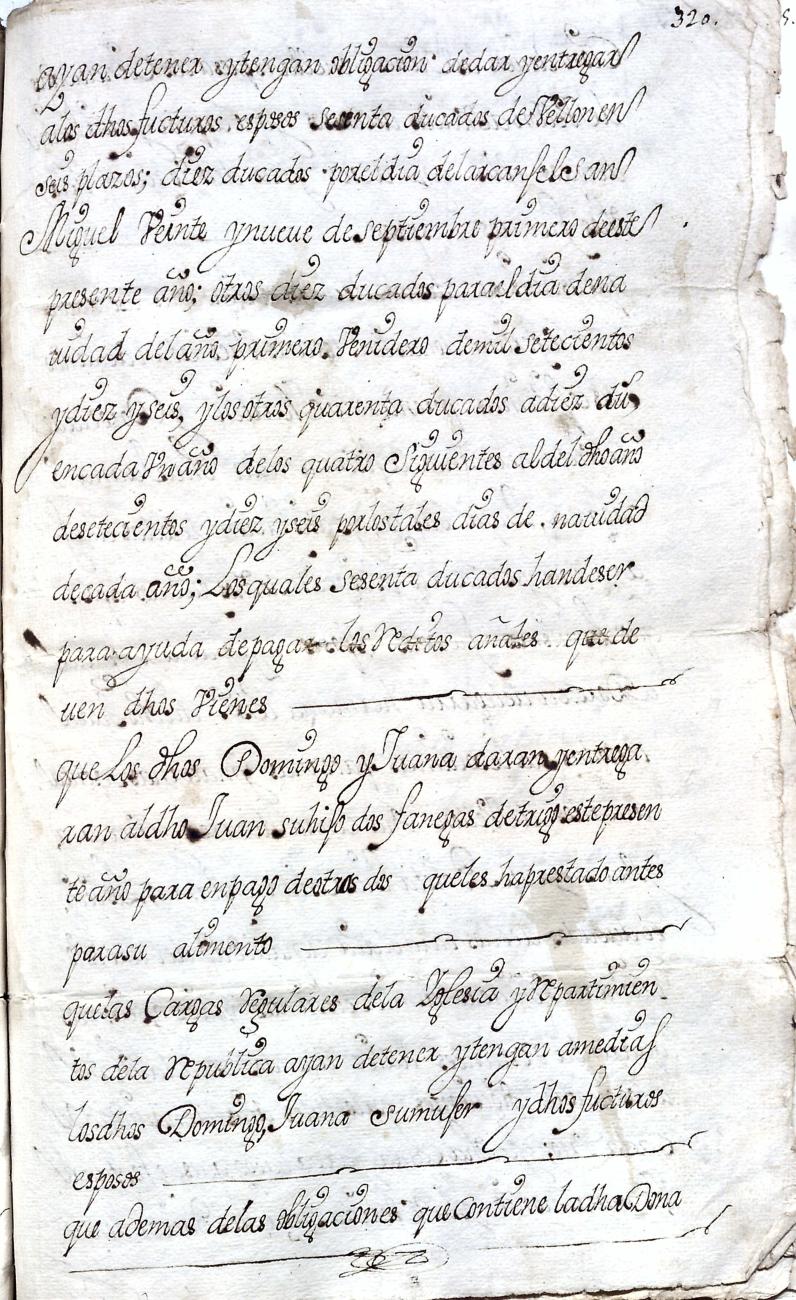 320.
ayan detener ytengan obligaçion dedar yentregar
alos dhos fucturos esposos sesenta ducados deVellon en
seis plazos; diez ducados por el dia del arcanfel San
Miguel Veinte ynueve de septiembre primero deeste
presente año; otros diez ducados para el dia dena
uidad del año primero Venidero demil setecientos
ydiez yseis, ylos otros quarenta ducados adiez du,
encada Vn año delos quatro Siguientes al del dho año
desetecientos ydiez yseis por los tales dias de nauidad
decada año; Los quales sesenta ducados handeser
para ayuda depagar los Reditos añales que de
uen dhos Vienes
que Los dhos Domingo y Juana daran yentrega
ran aldho Juan suhifo dos fanegas detrigo este presen
te año para enpago deotros dos queles haprestado antes
parasu alimento
quelas Cargas Regulares dela Yglesia y Repartimien
tos dela Republica ayan detener ytengan amedias
losdhos Domingo, Juana sumufer ydhos fucturos
esposos
que ademas delas obligaciones que contiene ladha Dona